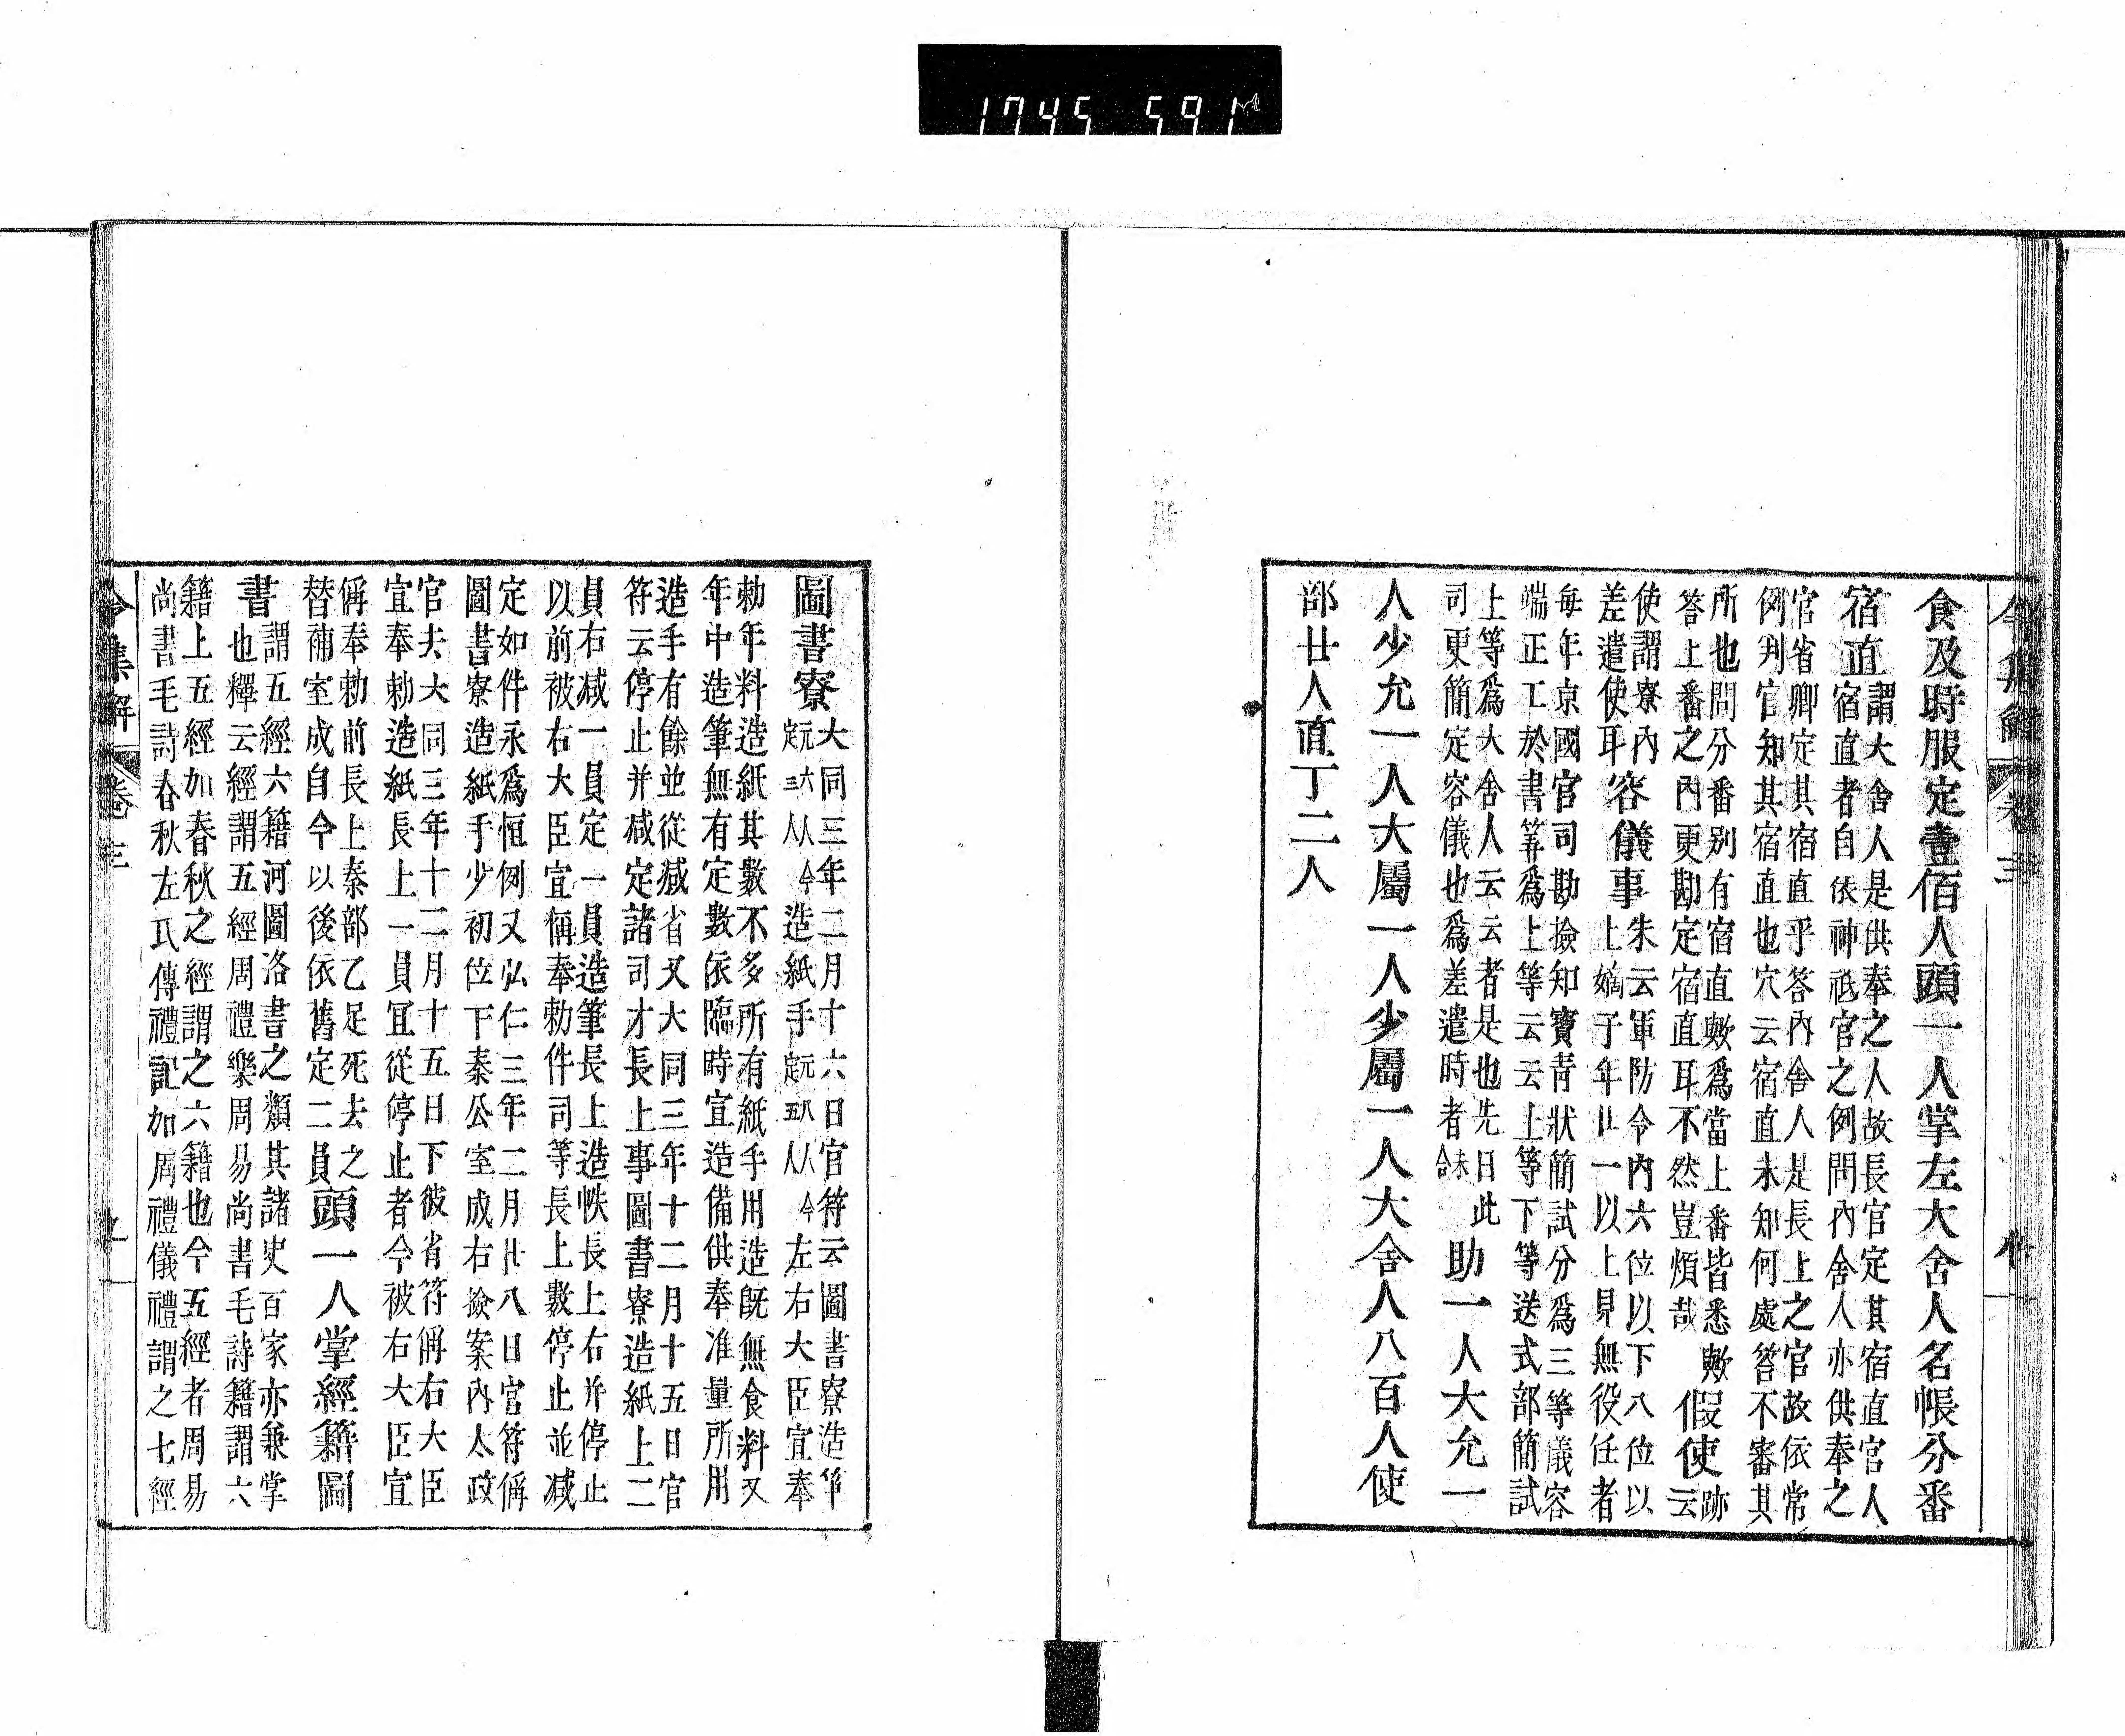 1745 591
令集解 卷三
食及時服定壹佰人頭一人掌左大舍人名帳分番
宿直
謂大舍人是供奉之人故長官定其宿直官人
宿直者自依神祇官之例問內舍人亦供奉之
官省卿定其宿直乎答內舍人是長上之官故依常
例判官知其宿直也穴云宿直未知何處答不審其
所也問分番別有宿直歟爲當上番皆悉歟
答上番之內更勘定宿直耳不然豈煩哉
假使
跡
云
使謂寮內
差遣使耳
容儀事
朱云軍防令內六位以下八位以
上嫡子年廿一以上見無役任者
每年京國官司勘撿知實靑狀簡試分爲三等儀容
端正工於書筭爲上等云云上等下等送式部簡試
上等爲大舍人云云者是也先日此
司更簡定容儀也爲差遣時者未合
助一人大允一
人少允一人大屬一人少屬一人大舍人八百人使
部廿人直丁二人
圖書寮
大同三年二月十六日官符云圖書寮造筆
元六人今定三人造紙手元八人今定五人左右大臣宣奉
勅年料造紙其數不多所有紙手用造旣無食料又
年中造筆無有定數依臨時宣造備供奉准量所用
造手有餘並從減省又大同三年十二月十五日官
符云停止并減定諸司才長上事圖書寮造紙上二
員右減一員定一員造筆長上造帙長上右并停止
以前被右大臣宣稱奉勅件司等長上數停止並減
定如件永爲恒例又弘仁三年二月廿八日官符偁
圖書寮造紙手少初位下秦公室成右撿案內太政
官去大同三年十二月十五日下彼省符偁右大臣
宣奉勅造紙長上一員冝從停止者今被右大臣宣
偁奉勅前長上秦部乙足死去之
替補室成自今以後依舊定二員
頭一人掌經籍圖
書
謂五經六籍河圖洛書之類其諸史百家亦兼掌
也釋云經謂五經周禮樂周易尚書毛詩籍謂六
籍上五經如春秋之經謂之六籍也今五經者周易
尚書毛詩春秋左氏傳禮記加周禮儀禮謂之七經
令集解 卷三